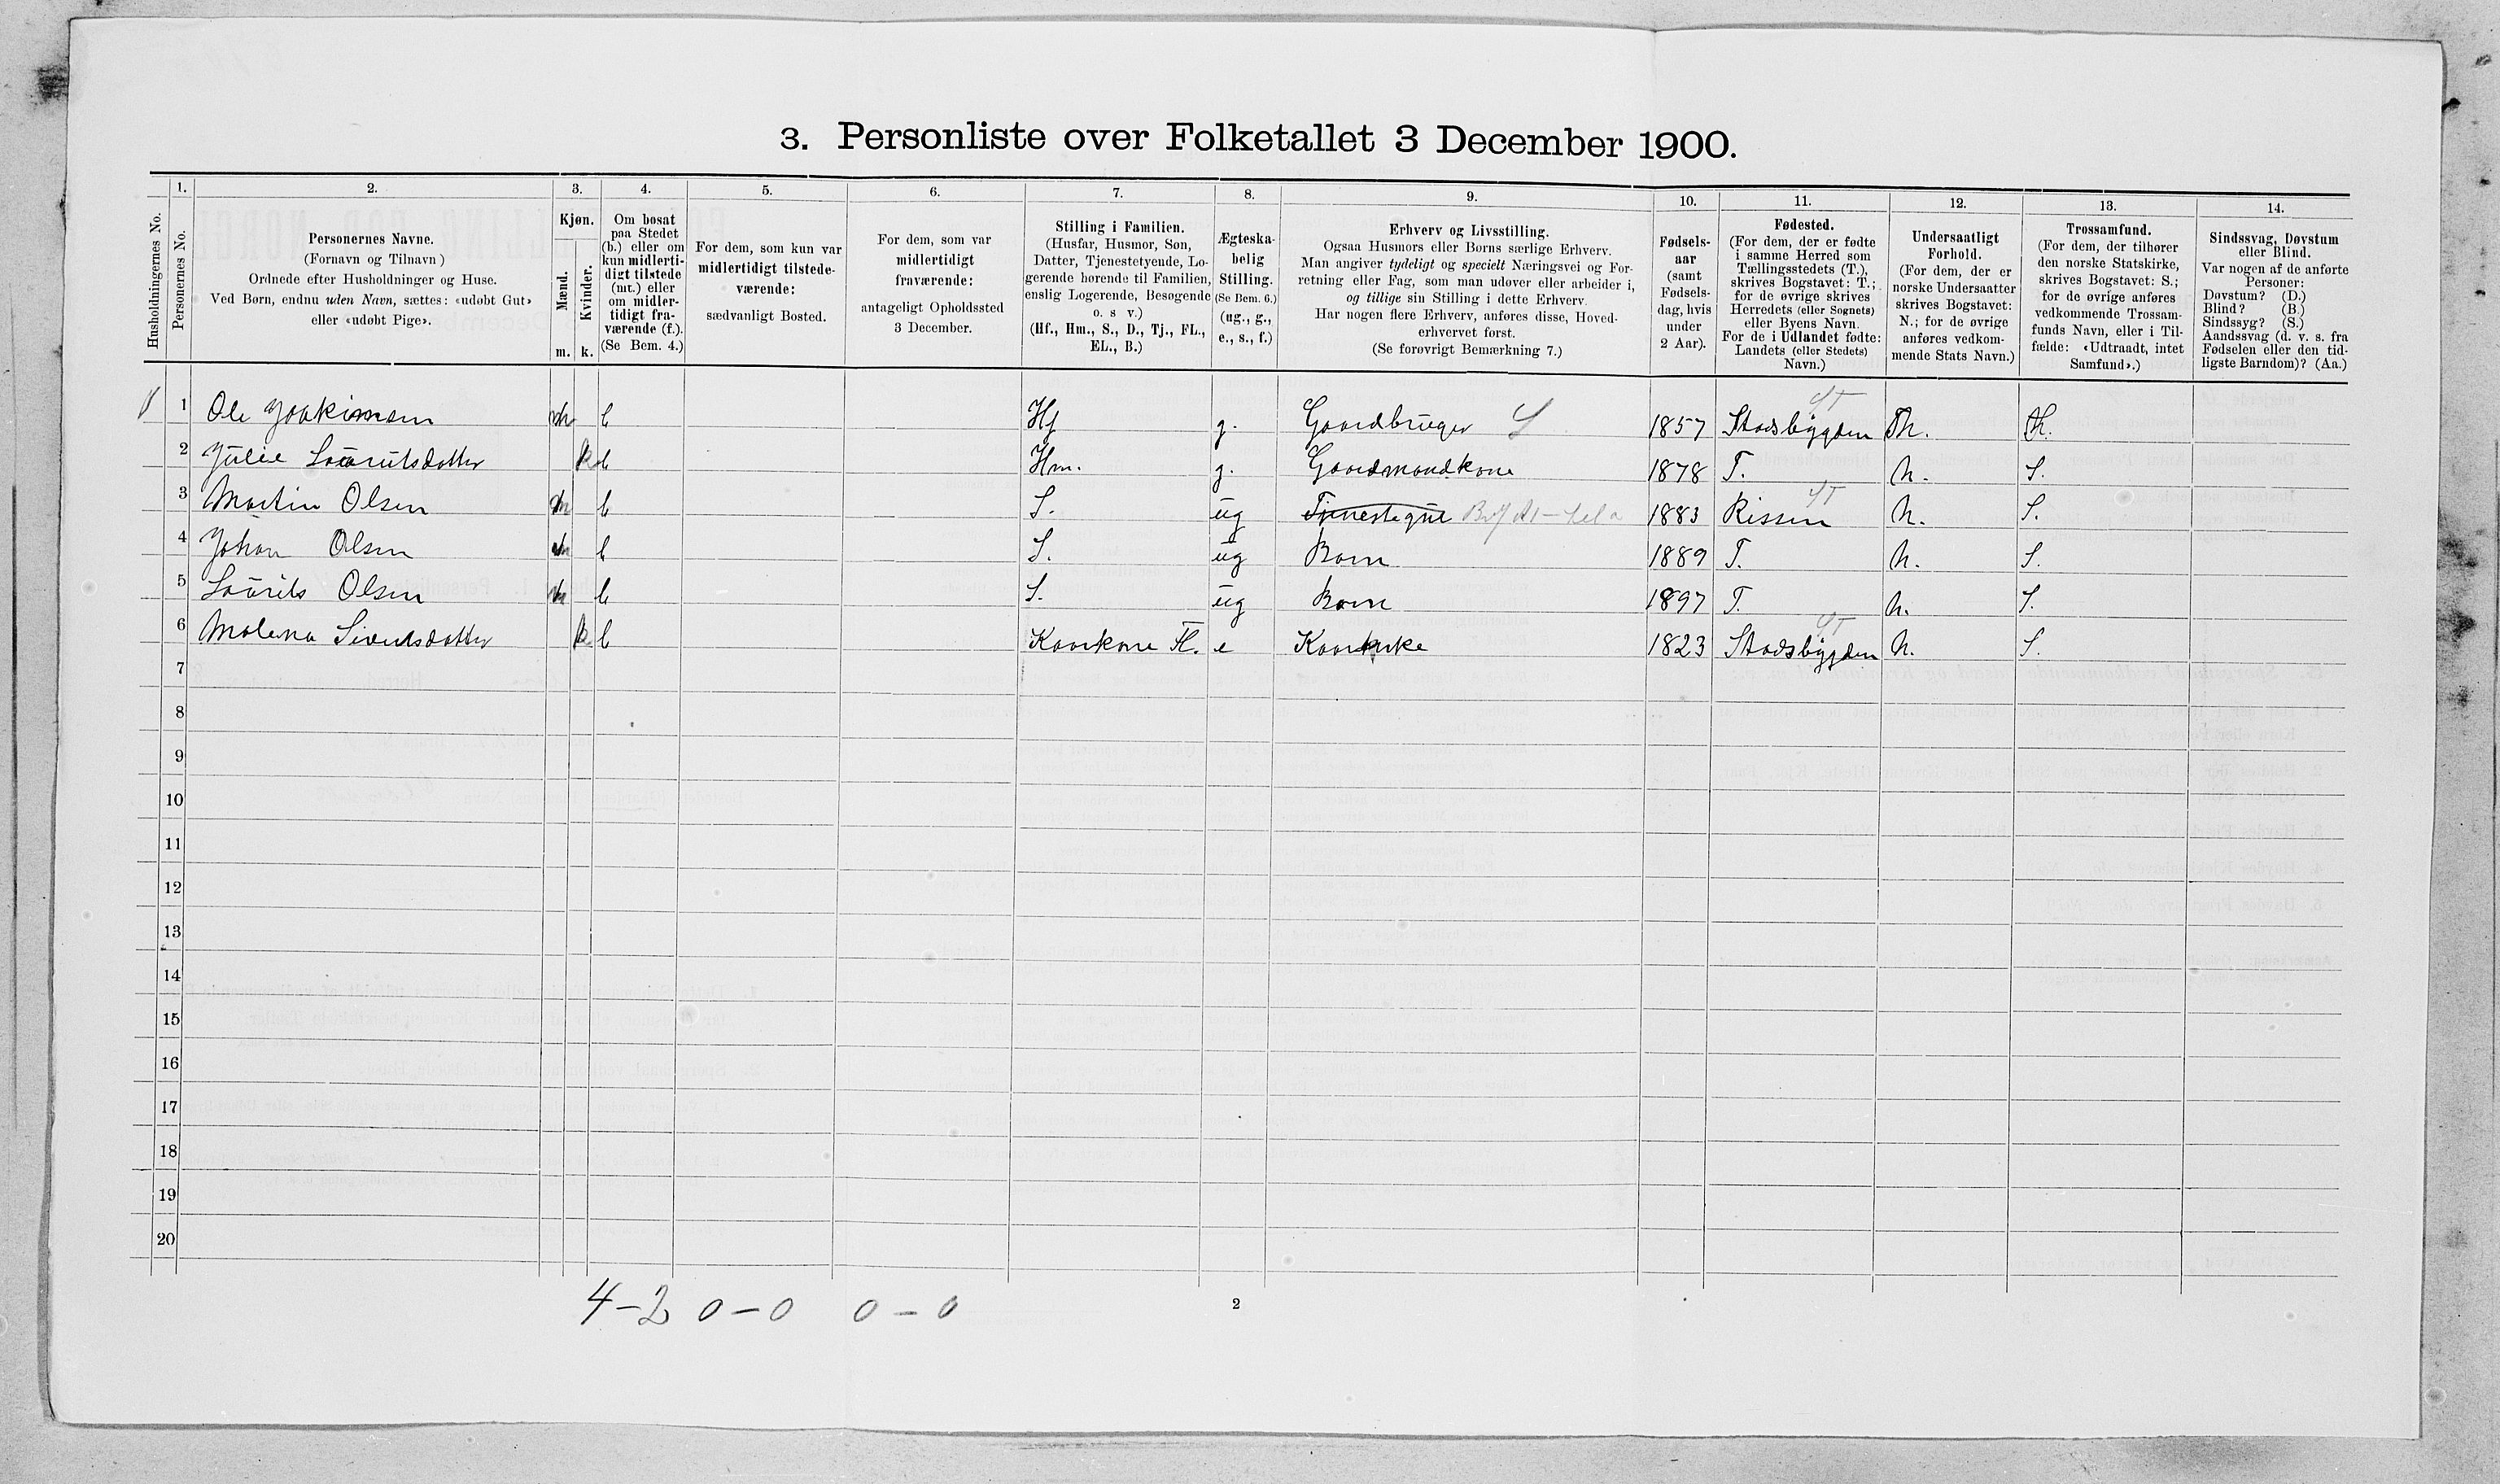 3. Personliste over Folketallet 3 December 1900.
Husholdningernes No.
1. Personernes No.
2. Personernes Navne.
(Fornavn og Tilnavn)
Ordnede efter Husholdninger og Huse.
Ved Børn, endnu uden Navn, sættes: «udøbt Gut»
eller «udøbt Pige».
3. Kjøn.
Mænd. m.
Kvinder. k.
4. Om bosat
paa Stedet
(b.) eller om
kun midlerti-
digt tilstede
(mt.) eller
om midler-
tidigt fra-
værende (f.).
(Se Bem. 4.)
5. For dem, som kun var
midlertidigt tilstede-
værende:
sædvanligt Bosted.
6. For dem, som var
midlertidigt
fraværende:
antageligt Opholdssted
3 December.
7. Stilling i Familien.
(Husfar, Husmor, Søn,
Datter, Tjenestetyende, Lo-
gerende hørende til Familien,
enslig Logerende, Besøgende
o. s v.)
(Hf., Hm., S., D., Tj., FL.,
EL., B.)
8. Ægteska-
belig
Stilling.
(Se Bem. 6.)
(ug., g.,
e., s., f.)
9. Erhverv og Livsstilling.
Ogsaa Husmors eller Børns særlige Erhverv.
Man angiver tydeligt og specielt Næringsvei og For-
retning eller Fag, som man udøver eller arbeider i,
og tillige sin Stilling i dette Erhverv.
Har nogen flere Erhverv, anføres disse, Hoved-
erhvervet først.
(Se forøvrigt Bemærkning 7.)
10. Fødsels-
aar
(samt
Fødsels-
dag, hvis
under
2 Aar).
11. Fødested.
(For dem, der er fødte
i samme Herred som
Tællingsstedets (T.),
skrives Bogstavet: T.;
for de øvrige skrives
Herredets (eller Sognets)
eller Byens Navn.
For de i Udlandet fødte:
Landets (eller Stedets)
Navn.)
12. Undersaatligt
Forhold.
(For dem, der er
norske Undersaatter
skrives Bogstavet:
N.; for de øvrige
anføres vedkom-
mende Stats Navn.)
13. Trossamfund.
(For dem, der tilhører
den norske Statskirke,
skrives Bogstavet: S.;
for de øvrige anføres
vedkommende Trossam-
funds Navn, eller i Til-
fælde: «Udtraadt, intet
Samfund».)
14. Sindssvag, Døvstum
eller Blind.
Var nogen af de anførte
Personer:
Døvstum? (D.)
Blind? (B.)
Sindssyg? (S.)
Aandssvag (d. v. s. fra
Fødselen eller den tid-
ligste Barndom)? (Aa.)
1 Ole Joakimsen m b Hf g. Gaardbruger 1857 Stadsbygden N.
2 Julie Lauritsdatter k b Hm. g. Gaardmandkone 1878 T. N. S.
3 Martin Olsen m b S. ug Tjenestegut 1883 Rissen N. S.
4 Johan Olsen m b S. ug Barn 1889 T. N. S.
5 Laurits Olsen m b S. ug Barn 1897 T. N. S.
6 Malena Sivertsdatter k b Kaarkone Fl. e 1823 Stadsbygden N. S.
7
8
9
10
11
12
13
14
15
16
17
18
19
20
4-2 0-0 0-0
2